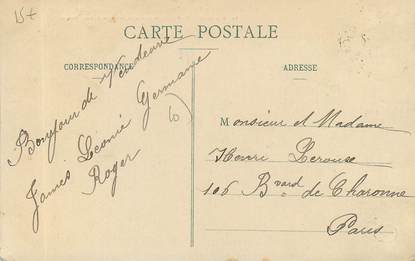 15+
CARTE POSTALE
CORRESPONDANCE
ADRESSE
Bonjour de Vendeuvre
James Léonie Germaine
Roger
10
Monsieur et Madame
Henri Lerouse
106 Bvard de Charonne
Paris